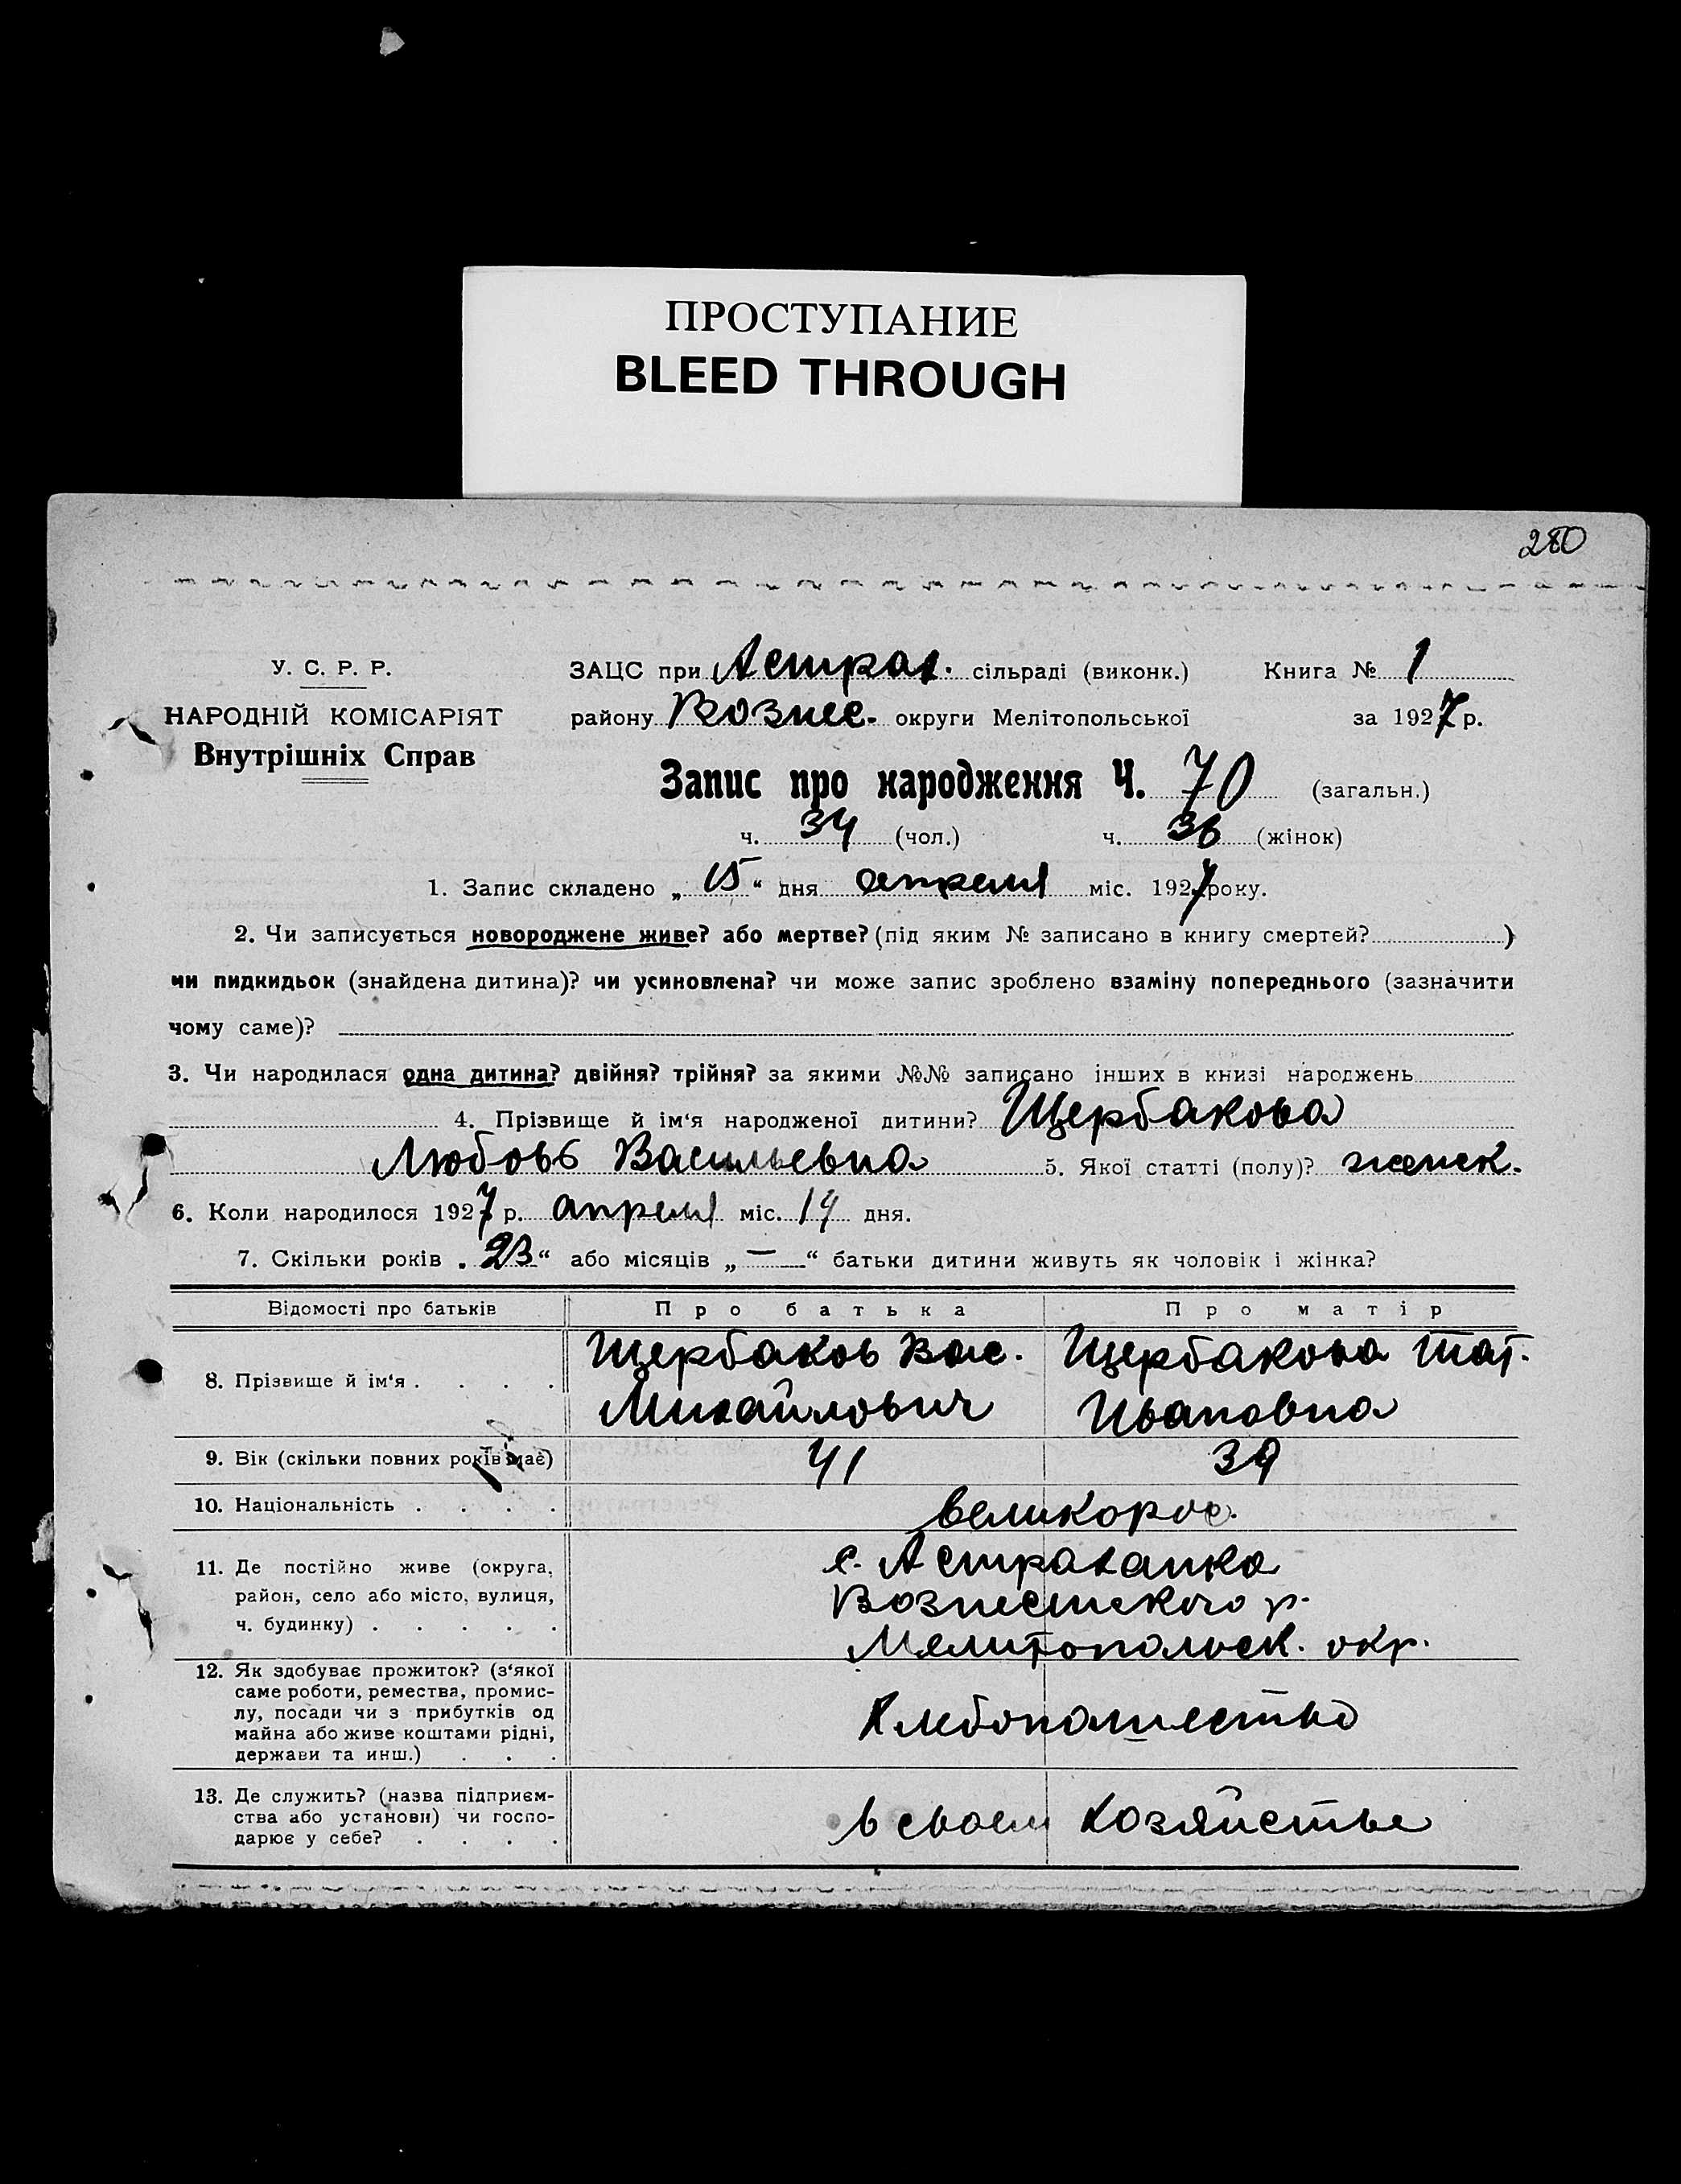 ПРОСТУПАНИЕ
BLEED THROUGH
280
У. С. Р. Р.
НАРОДНІЙ КОМІСАРІЯТ
Внутрішніх Справ
ЗАЦС при Астрах. сільраді (виконк.) Книга № 1
району Вознес. округи Мелітопольської за 1927 р.
Запис про народження Ч. 70 (загальн.)
ч. 34 (чол.) ч. 36 (жінок)
1. Запис складено „ 15 “ дня апреля міс. 1927 року.
2. Чи записується новороджене живе? або мертве? (під яким № записано в книгу смертей? )
чи пидкидьок (знайдена дитина)? чи усиновлена? чи може запис зроблено взаміну попереднього (зазначити
чому саме)?
3. Чи народилася одна дитина? двійня? трійня? за якими №№ записано інших в книзі народжень
4. Прізвище й ім‘я народженої дитини? Щербакова
Любовь Васильевна 5. Якої статті (полу)? женск.
6. Коли народилося 1927 р. апреля міс. 14 дня.
7. Скільки років „ 23 “ або місяців „ — “ батьки дитини живуть як чоловік і жінка?
Відомості про батьків Про батька Про матір
8. Прізвище й ім‘я . . . . Щербаков Вас. Михайлович Щербакова Тат. Ивановна
9. Вік (скільки повних років має) 41 39
10. Національність . . . . великорос.
11. Де постійно живе (округа,
район, село або місто, вулиця,
ч. будинку) . . . . .
с. Астраханка
Вознесенского р.
Мелитопольск. окр.
12. Як здобуває прожиток? (з‘якої
саме роботи, ремества, промис-
лу, посади чи з прибутків од
майна або живе коштами рідні,
держави та инш.) . . .
Хлебопашество
13. Де служить? (назва підприєм-
ства або установи) чи госпо-
дарює у себе? . . . .
в своем хозяйстве